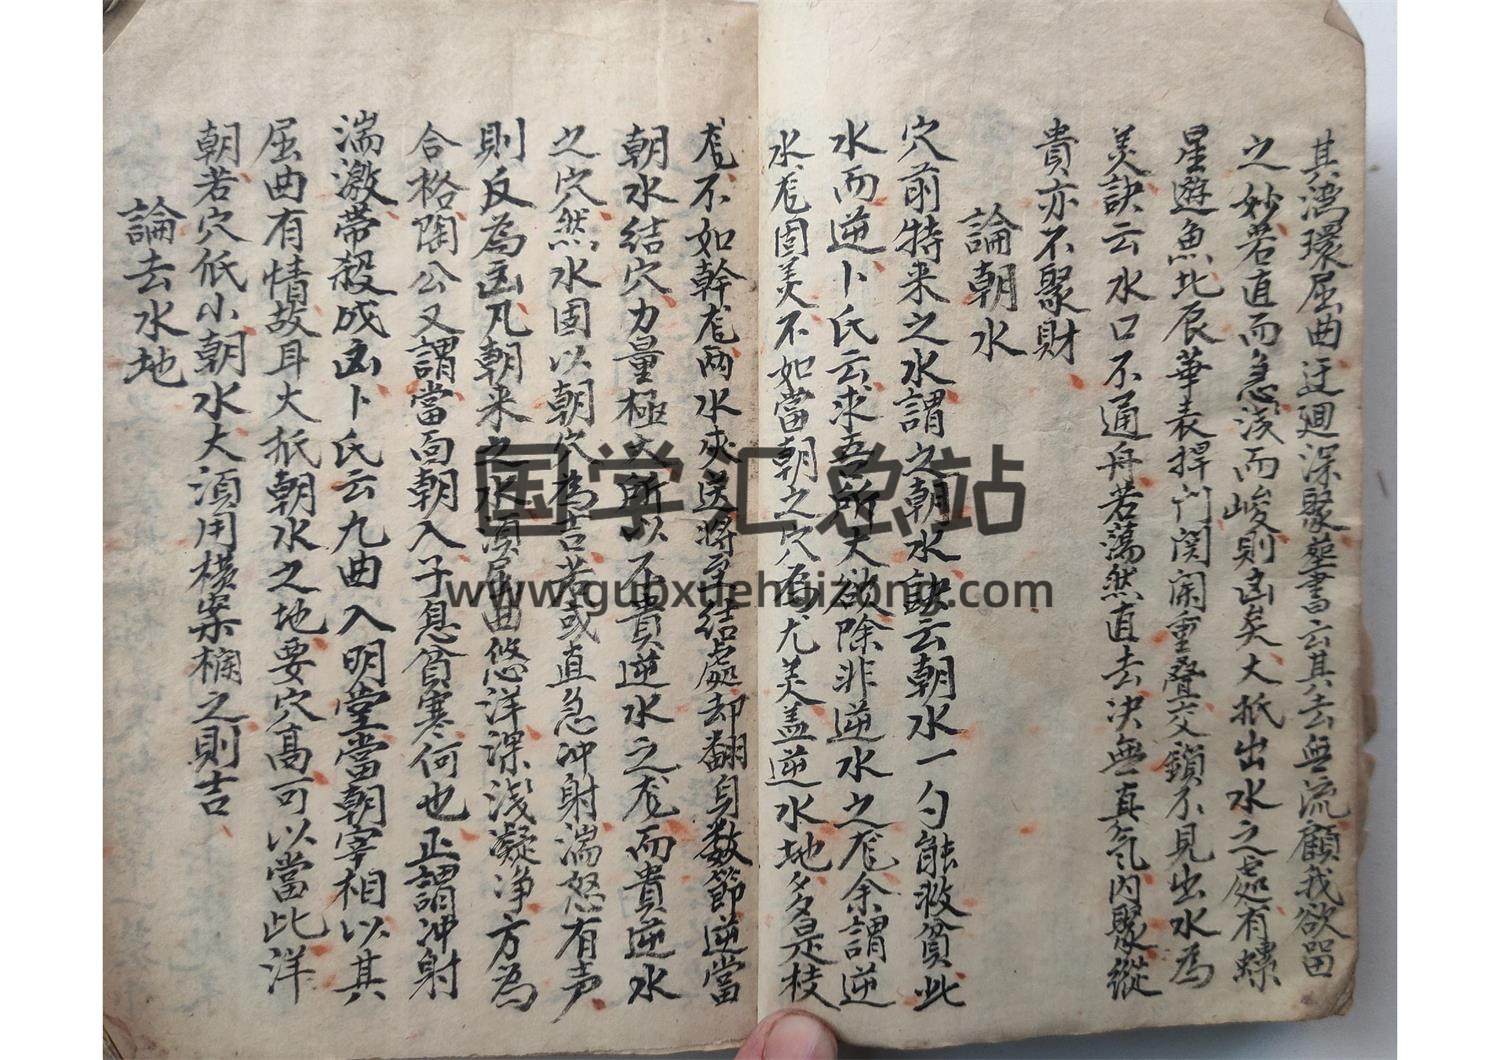 其灣環屈曲迂廻深聚塟書云其去無流顧我欲留
之妙若直而急淺而峻則凶矣大抵出水之處有螺
星遊魚北辰華表捍门関闌重叠交鎖不見出水為
美訣云水口不通舟若蕩然直去决無真气内聚縱
貴亦不聚財
論朝水
穴前特来之水謂之朝水訣云朝水一勺能救貧此
水而逆卜氏云求吾所大欲除非逆水之龙余謂逆
水龙固美不如當朝之穴為尤美盖逆水地多是枝
龙不如幹龙两水夾送將至結處却翻身数節逆當
朝水結穴力量極大所以不貴逆水之龙而貴逆水
之穴然水固以朝穴為吉若或直急冲射湍怒有声
則反為凶凡朝来之水須屈曲悠洋深浅凝净方為
合格陶公又謂當面朝入子息貧寒何也正謂冲射
湍激帶殺成凶卜氏云九曲入明堂當朝宰相以其
屈曲有情故耳大抵朝水之地要穴高可以當此洋
朝若穴低小朝水大須用横案欄之則吉
論去水地
国学汇总站
www.guoxuehuizong.com